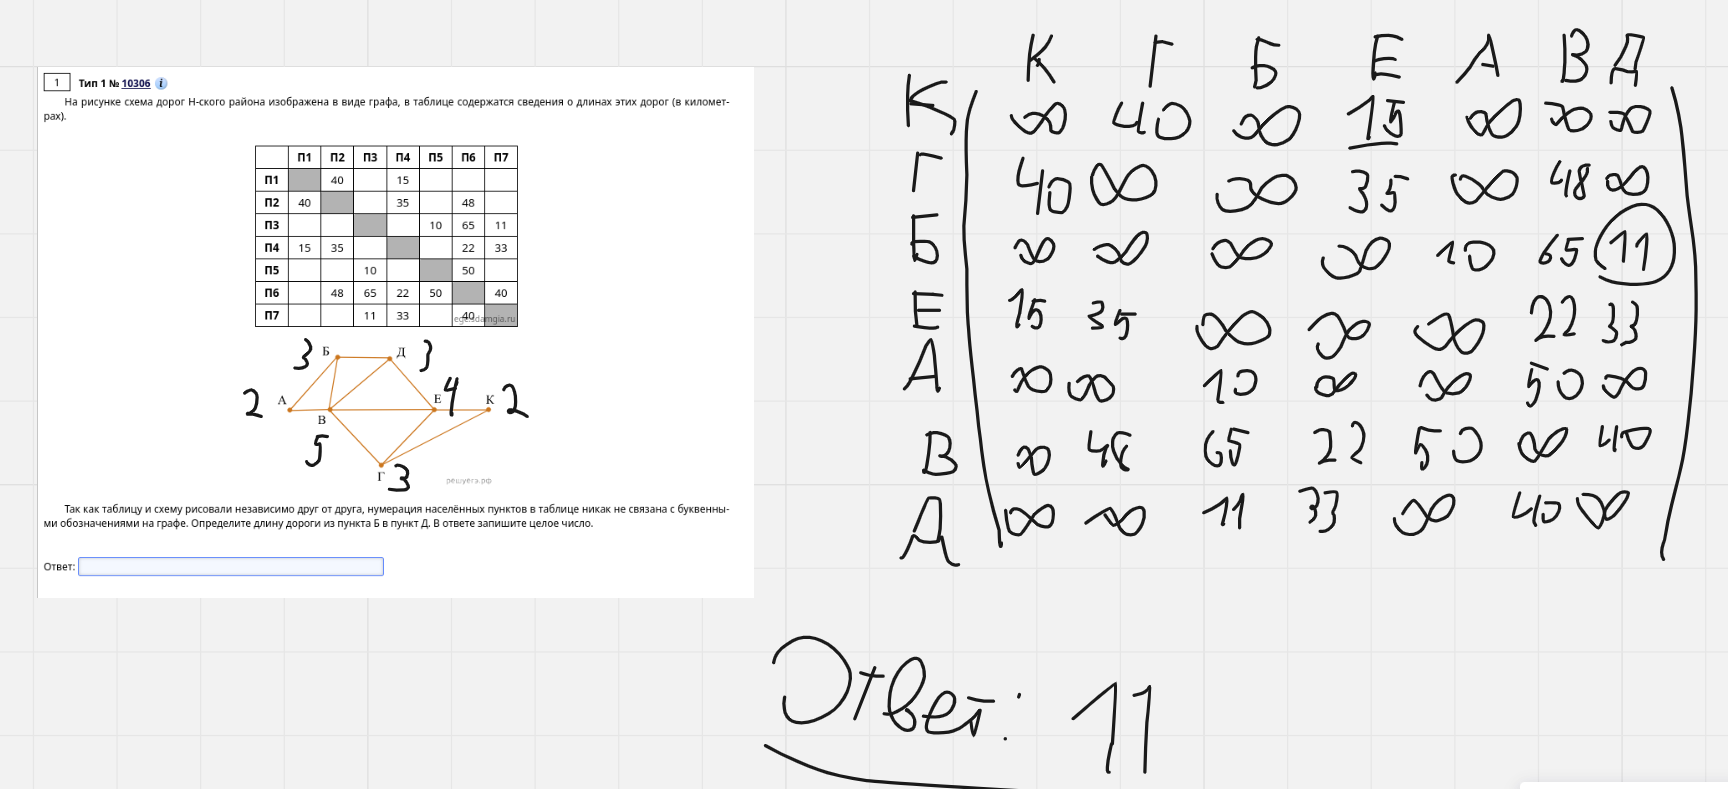 1 Тип 1 № 10306 i
На рисунке схема дорог Н-ского района изображена в виде графа, в таблице содержатся сведения о длинах этих дорог (в километ-
рах).
П1 П2 П3 П4 П5 П6 П7
П1 40 15
П2 40 35 48
П3 10 65 11
П4 15 35 22 33
П5 10 50
П6 48 65 22 50 40
П7 11 33 40
ege.sdamgia.ru
3 Б Д 3
2 А В Е 4 К 2
5
Г 3
решуегэ.рф
Так как таблицу и схему рисовали независимо друг от друга, нумерация населённых пунктов в таблице никак не связана с буквенны-
ми обозначениями на графе. Определите длину дороги из пункта Б в пункт Д. В ответе запишите целое число.
Ответ:
К Г Б Е А В Д
К ∞ 40 ∞ 15 ∞ ∞ ∞
Г 40 ∞ ∞ 35 ∞ 48 ∞
Б ∞ ∞ ∞ ∞ 10 65 11
Е 15 35 ∞ ∞ ∞ 22 33
А ∞ ∞ 10 ∞ ∞ 50 ∞
В ∞ 48 65 22 50 ∞ 40
Д ∞ ∞ 11 33 ∞ 40 ∞
Ответ: 11